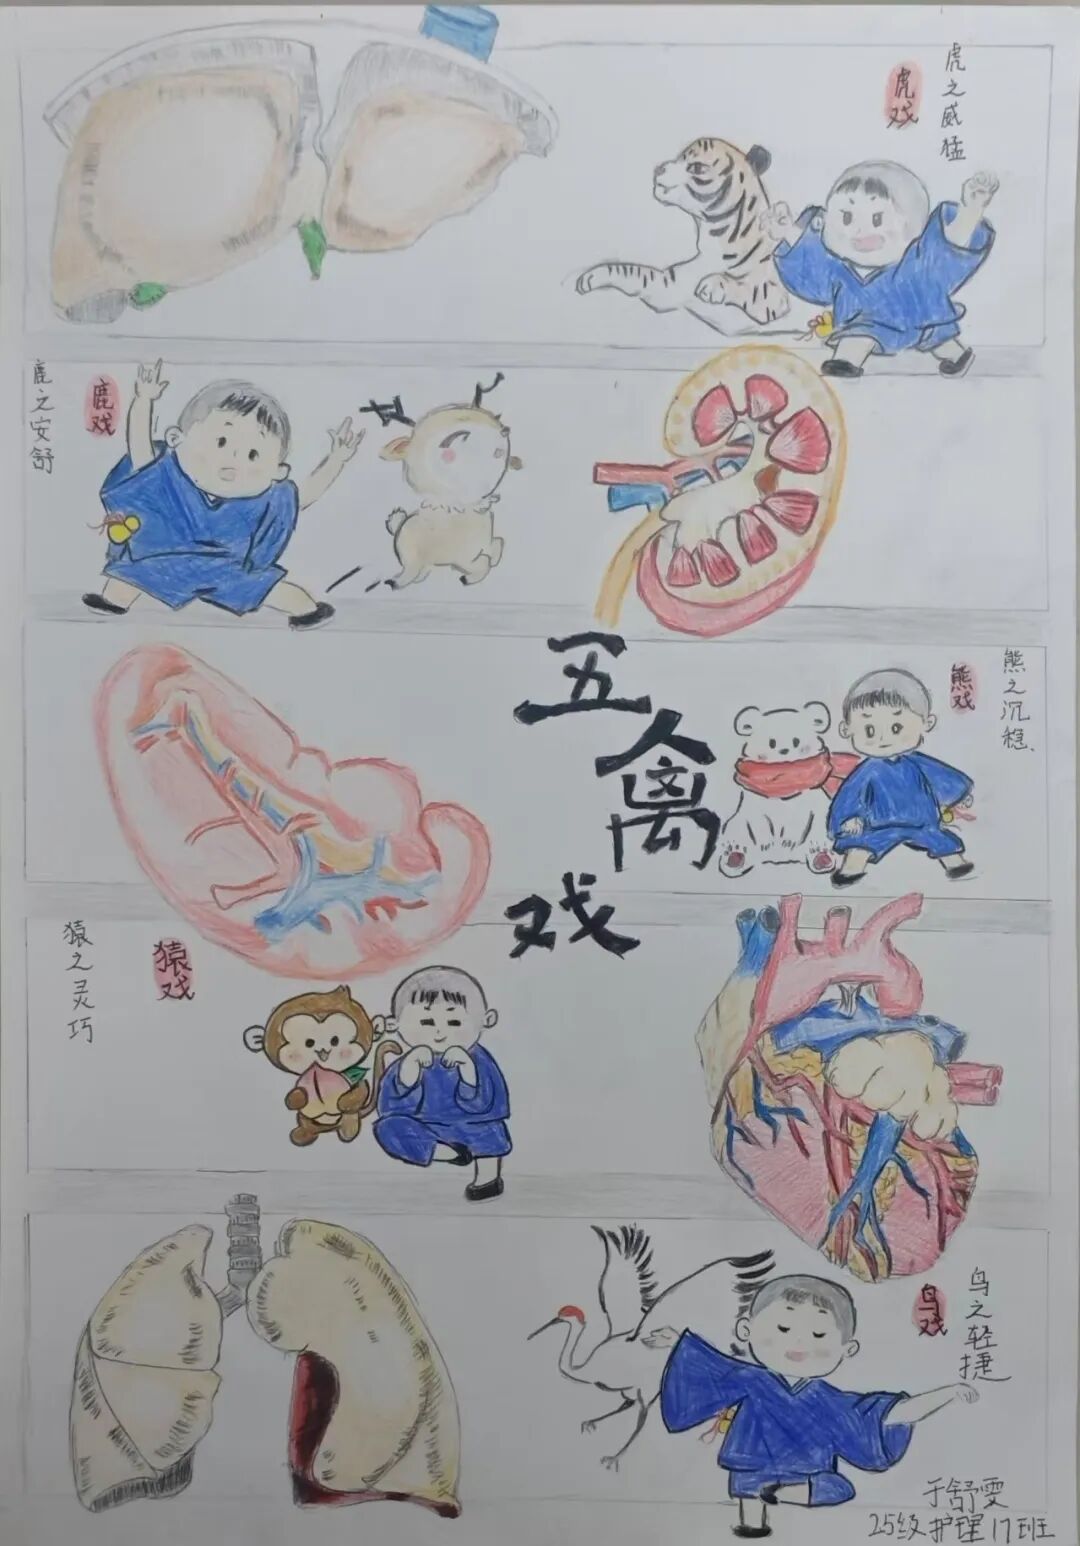 虎戏
虎之威猛
鹿之安舒
鹿戏
五禽戏
熊戏
熊之沉稳、
猿之灵巧
猿戏
鸟戏
鸟之轻捷
于舒雯
25级护理17班